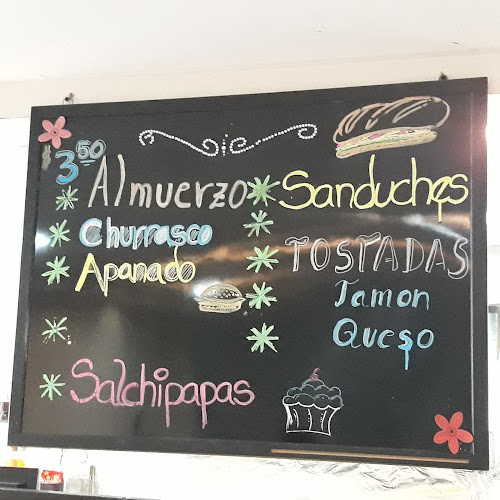 $3.50 Almuerzo
Churrasco
Apanado
Salchipapas
Sanduches
TOSTADAS
Jamon
Queso